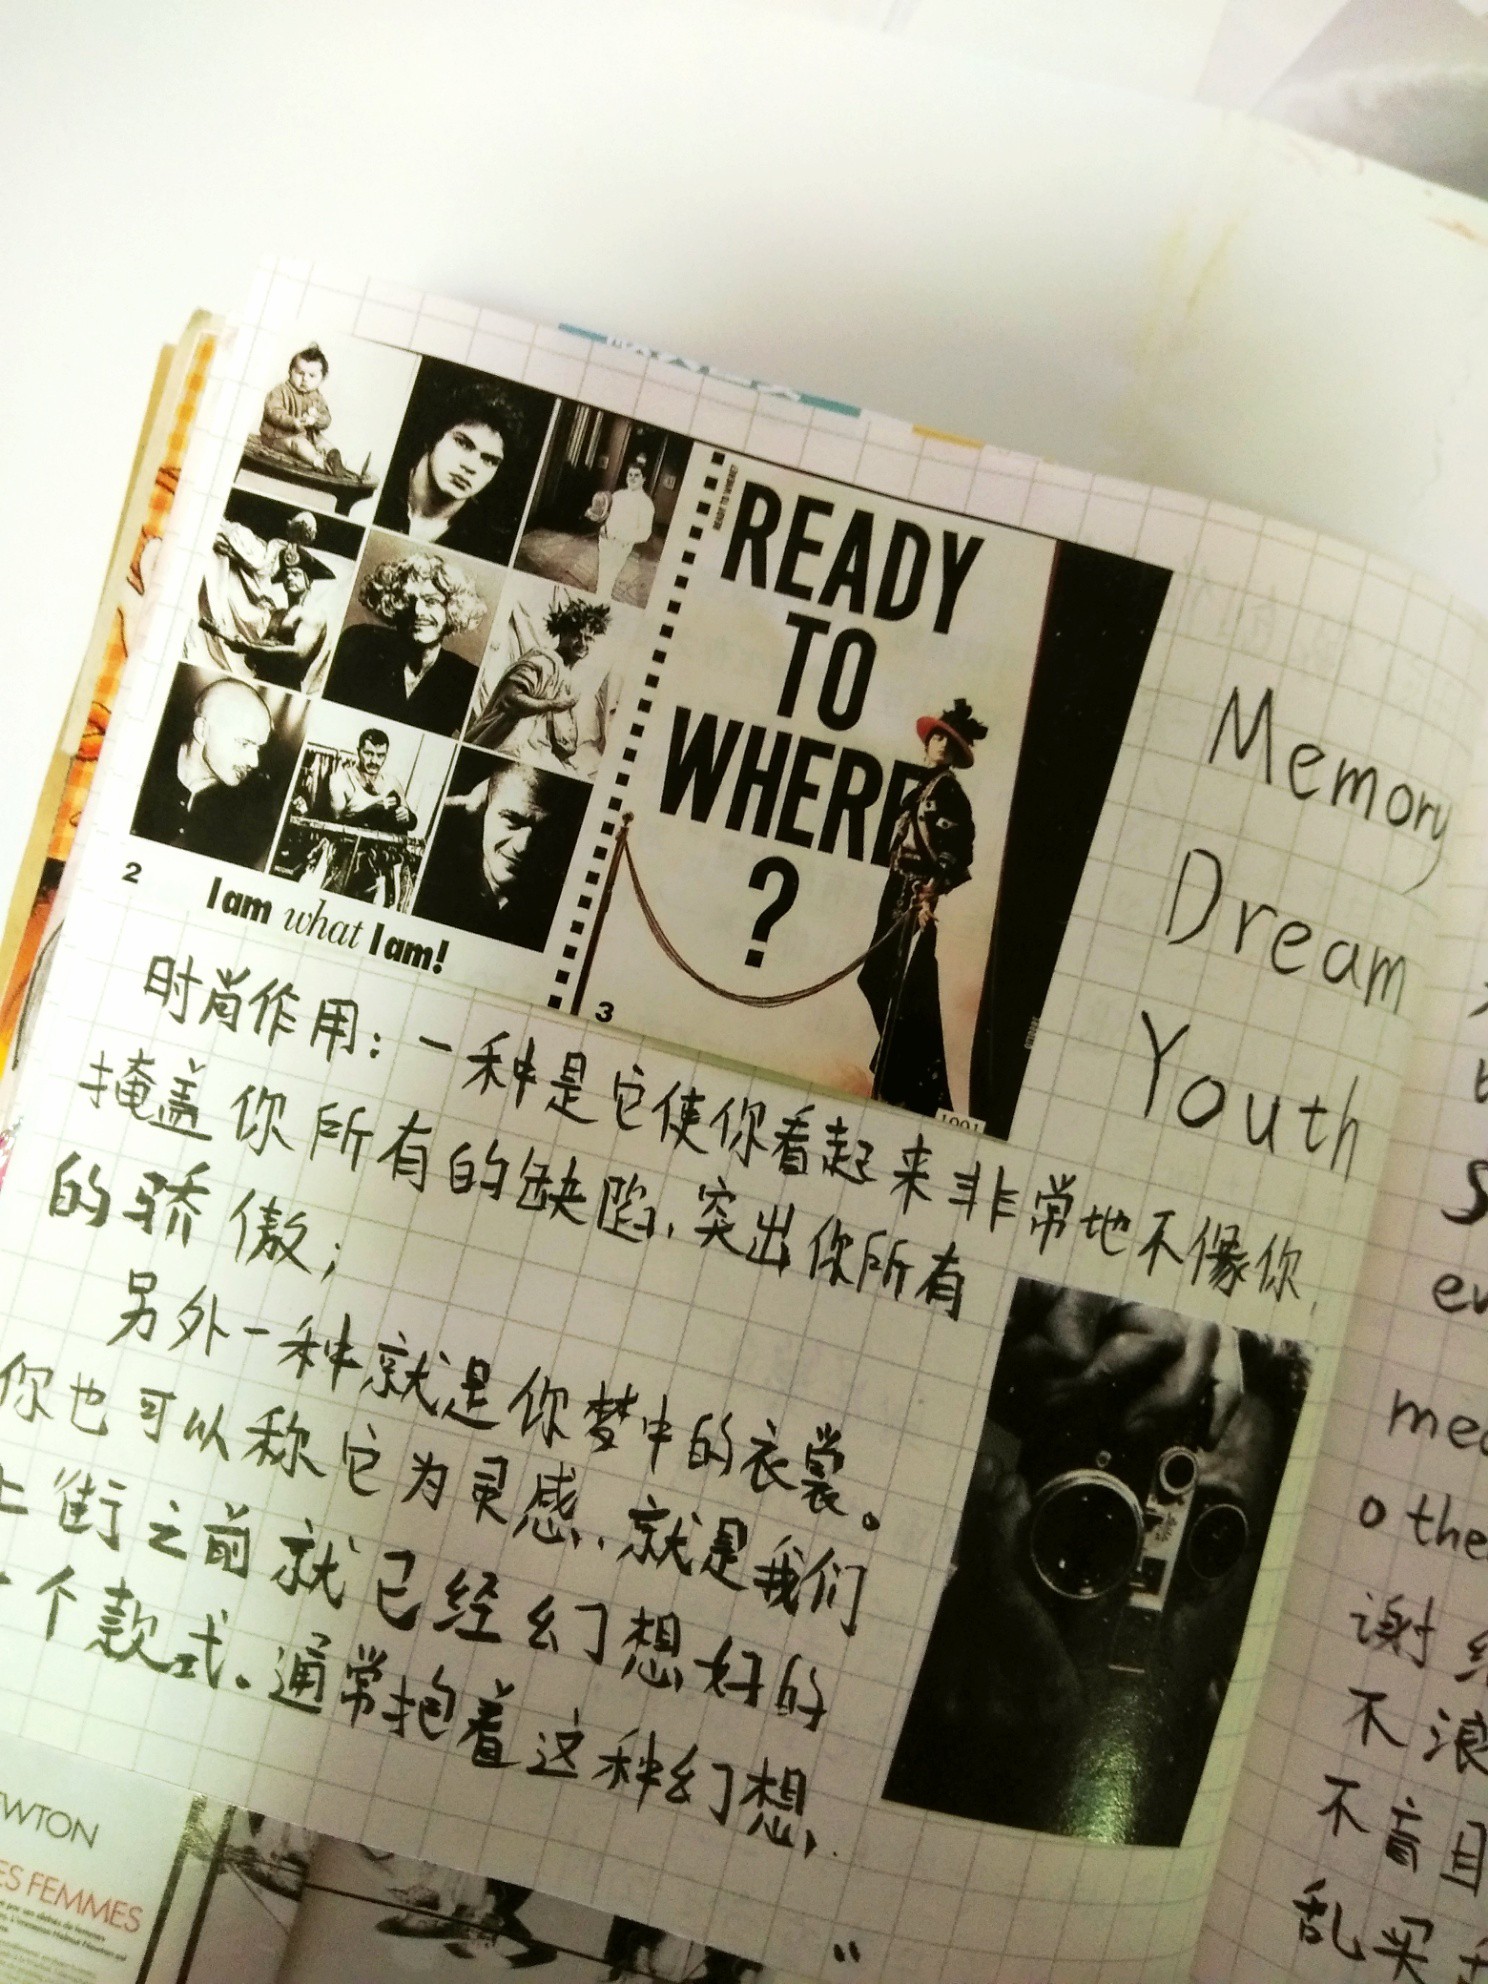 READY TO WHERE?
READY
TO
WHERE
?
2
I am what I am!
3
1991
Memory
Dream
Youth
时尚作用：一种是它使你看起来非常地不像你，
掩盖你所有的缺陷，突出你所有
的骄傲；
另外一种就是你梦中的衣裳。
你也可以称它为灵感，就是我们
上街之前就已经幻想好的
一个款式。通常抱着这种幻想，
EWTON
ES FEMMES
S
en
med
othe
谢绝
不浪
不盲目
乱买